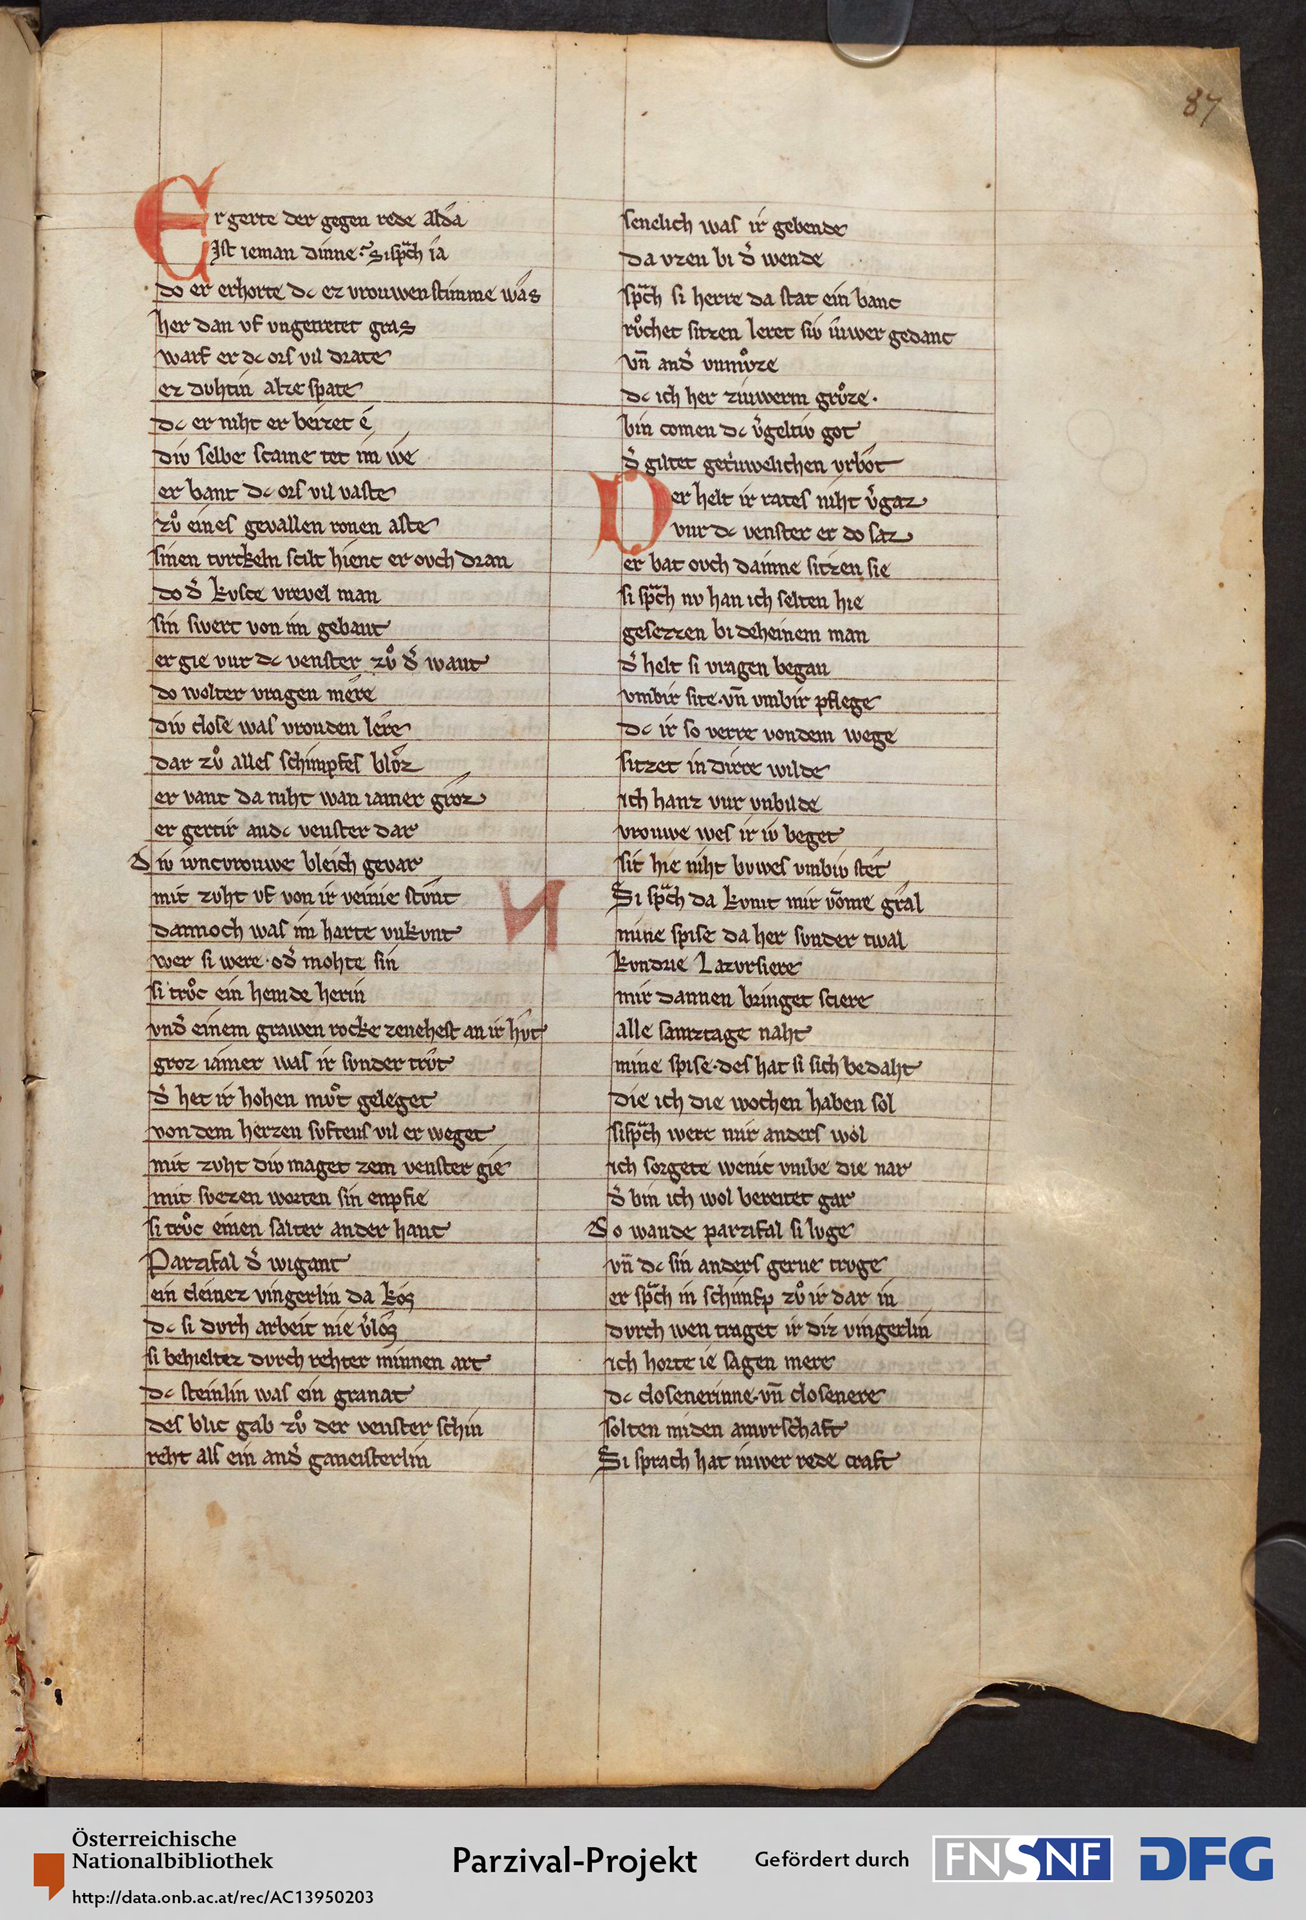 87
Er gerte der gegen rede alda
Ist ieman dinne. Si sp͛ch ia
do er erhorte dc ez vrouwen stimme was
her dan vf vngetretet gras
warf er dc ors vil drate
ez duhtin alze spate
dc er niht er beizet e
div selbe scame tet im we
er bant dc ors vil vaste
zvͦ eines gevallen ronen aste
sinen turckeln scilt hienc er ovch dran
do d͛ kvste vrevel man
sin swert von im gebant
er gie vur dc venster zvͦ d͛ want
do wolter vragen mere
div close was vrouden lere
dar zvͦ alles schimpfes bloz
er vant da niht wan iamer groz
er gertir an dc venster dar
Div ivncvrouwe bleich gevar
mit zvht vf von ir veinie stvnt
dannoch was im harte vnkvnt
wer si were. od͛ mohte sin
si trvͦc ein hemde herin
vnd͛ einem grawen rocke zenehest an ir hvt
groz iamer was ir svnder trvt
d͛ het ir hohen mvͦt geleget
von dem herzen svftens vil er weget
mit zvht div maget zem venster gie
mit svezen worten sin enpfie
si trvͦc einen salter an der hant
Parzifal d͛ wigant
ein cleinez vingerlin da kos
dc si dvrh arbeit nie v͛los
si behieltez dvrch rehter minnen art
dc steinlin was ein granat
des blic gab zvͦ der venster schin
reht als ein and͛ ganeisterlin
senelich was ir gebende
da vzen bi d͛ wende
sp͛ch si herre da stat ein banc
rvͦchet sitzen leret siv ivwer gedanc
vn̄ and͛ vnmvͦze
dc ich her ziuwerm grvͦze.
bin comen dc v͛geltiv got
d͛ giltet getriwelichen vrbot
Der helt ir rates niht v͛gaz
vur dc venster er do saz
er bat ovch dainne sitzen sie
si sp͛ch nv han ich selten hie
gesezzen bi deheinem man
d͛ helt si vragen began
vmbir site. vn̄ vmbir pflege
dc ir so verre von dem wege
sitzet in dirre wilde
ich hanz vur vnbilde
vrouwe wes ir iv beget
sit hie niht bvwes vmbiv stet
Si sp͛ch da kvmt mir vōme gral
N
mine spise da her svnder twal
kvndrie Lazvrsiere
mir dannen bringet sciere
alle samztage naht
mine spise. des hat si sich bedaht
die ich die wochen haben sol
si sp͛ch were mir anders wol
ich sorgete wenic vmbe die nar
d͛ bin ich wol bereitet gar
Do wande parzifal si lvge
vn̄ dc sin anders gerne trvge
er sp͛ch in schimfp zvͦ ir dar in
dvrch wen traget ir diz vingerlin
ich horte ie sagen mere
dc closenerinne. vn̄ closenere
solten miden amvrschaft
Si sprach hat iuwer rede craft
Österreichische
Nationalbibliothek
http://data.onb.ac.at/rec/AC13950203
Parzival-Projekt
Gefördert durch
FNSNF
DFG